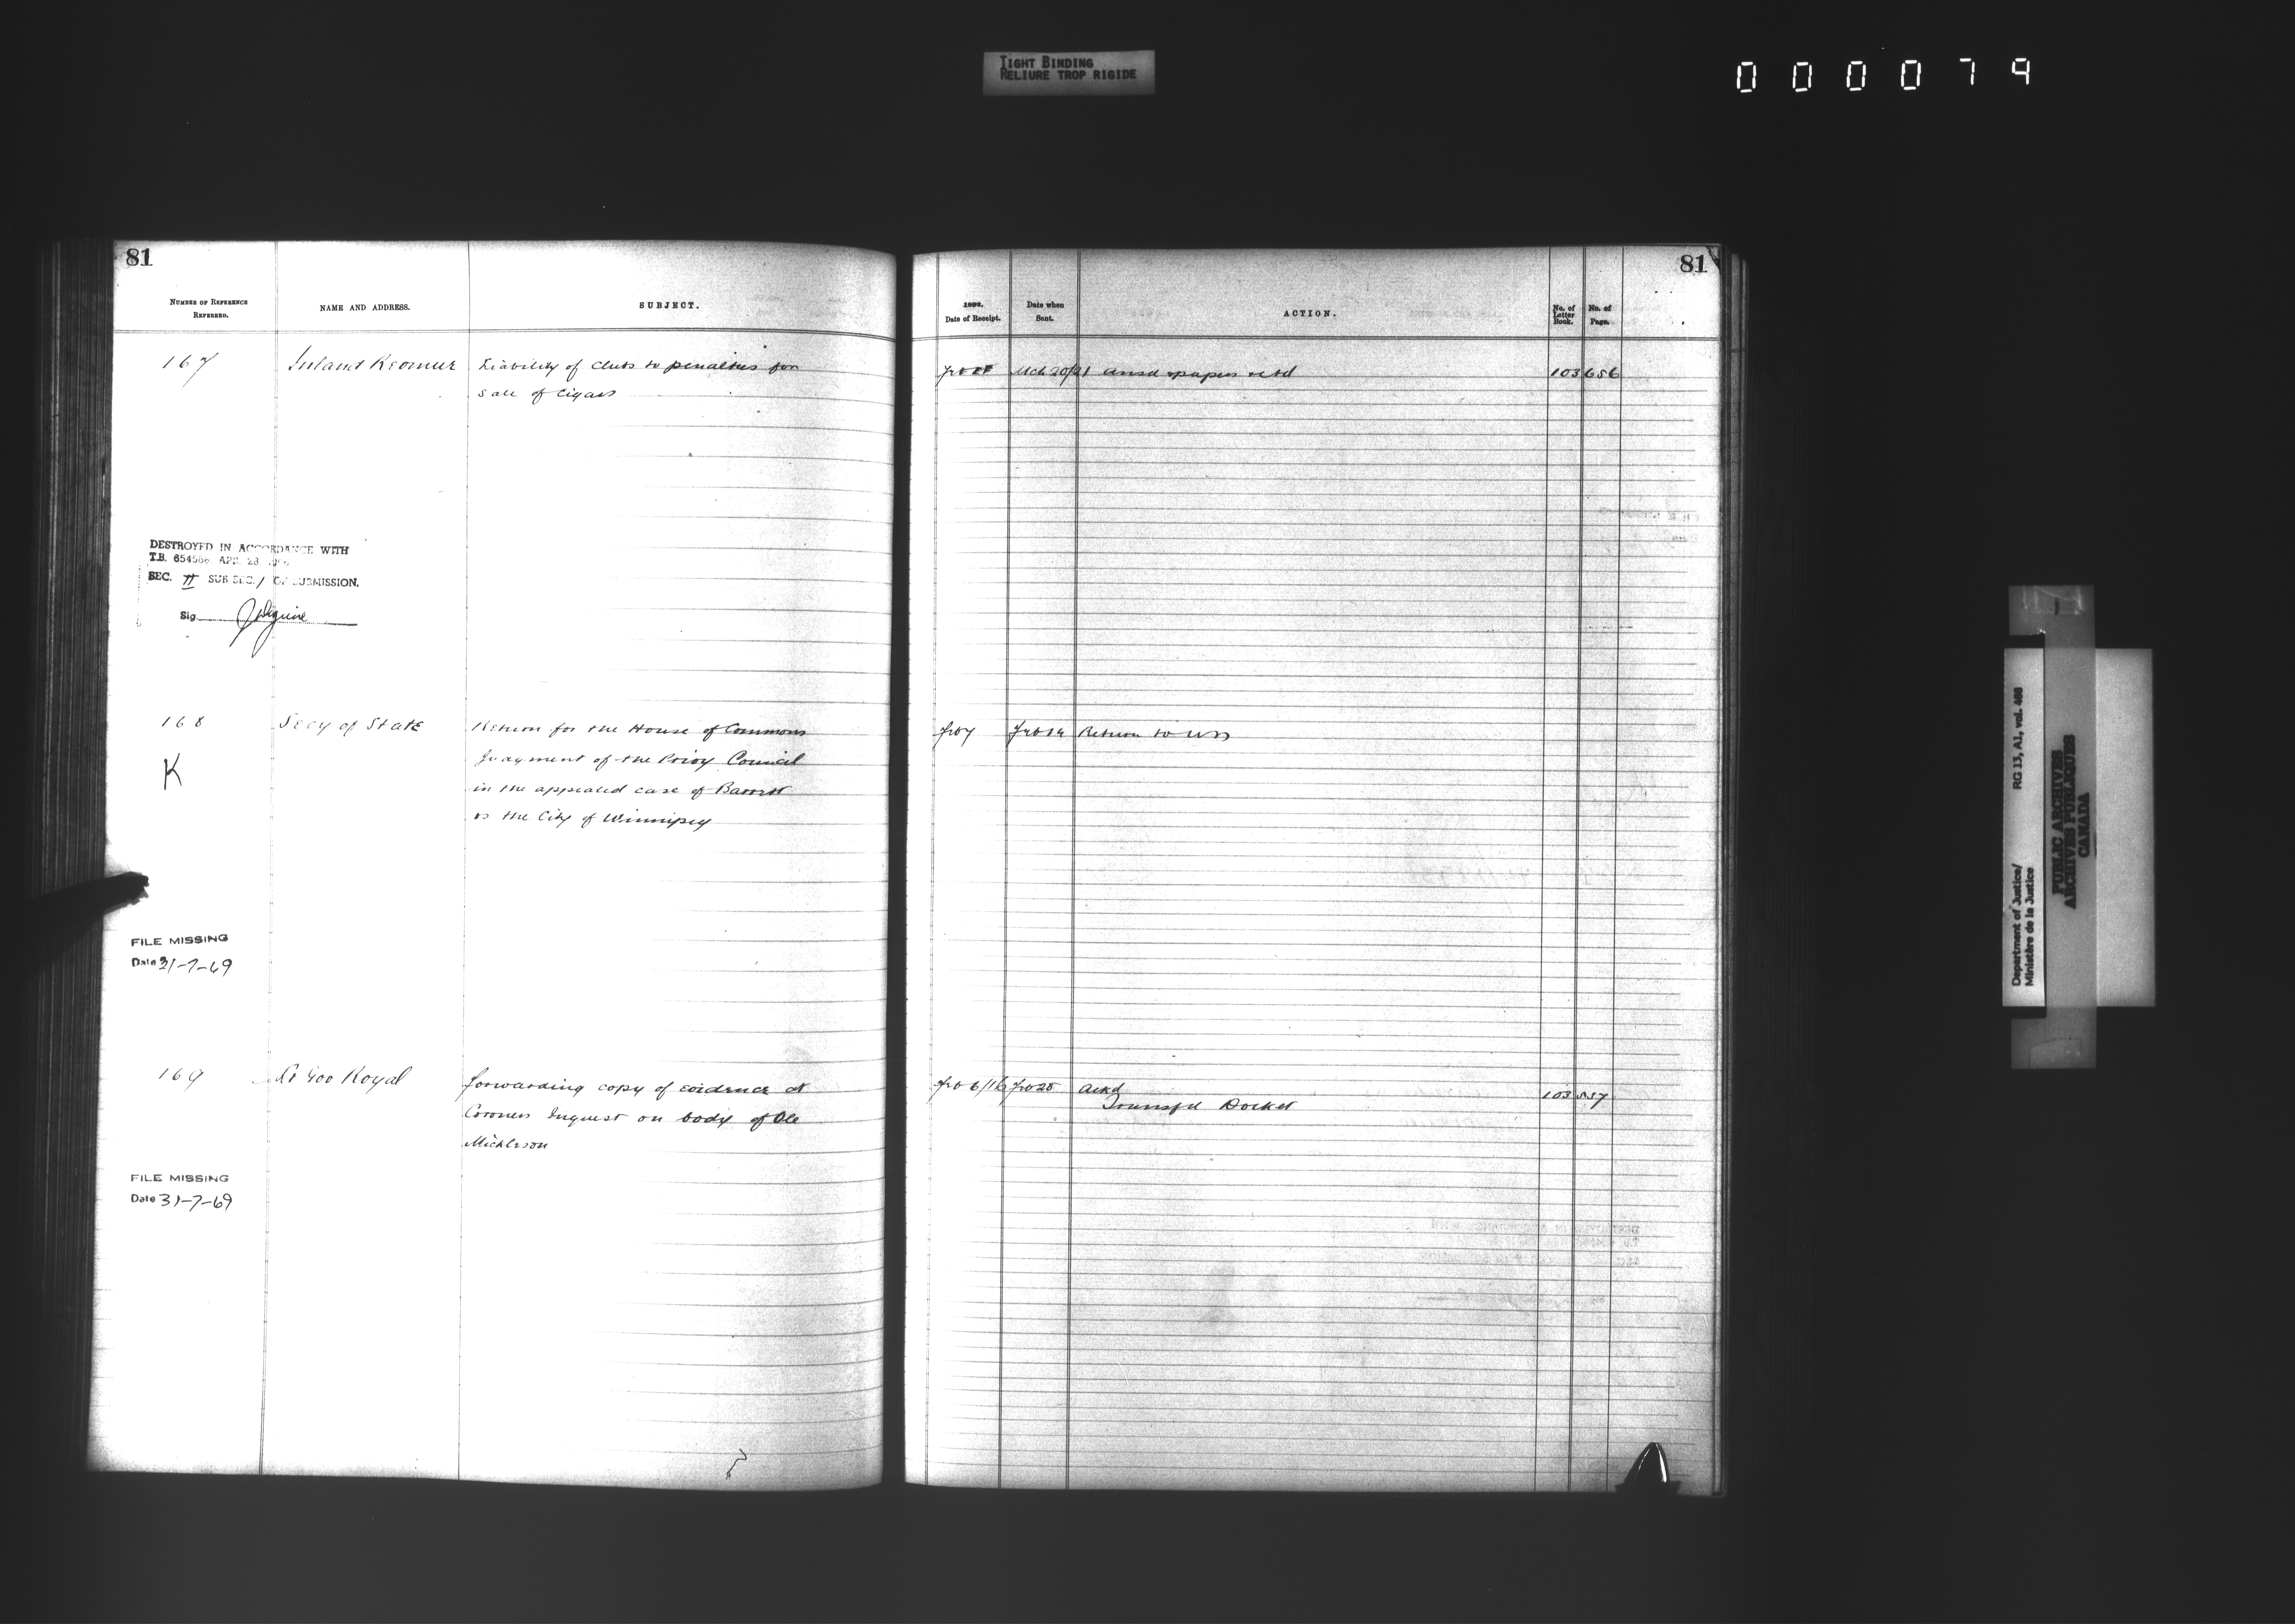 TIGHT BINDING
RELIURE TROP RIGIDE
000079
81
NUMBER OF REFERENCE
REFERRED.
NAME AND ADDRESS.
SUBJECT.
167
Inland Revenue
Liability of Clubs to penalties for
sale of Cigars
DESTROYED IN ACCORDANCE WITH
T.B. 654566 APR 28
SEC. II SUB SEC. 1 OF SUBMISSION.
Sig
168
Secy of State
Return for the House of Commons
K
Judgment of the Privy Council
in the appealed case of Barrett
vs the City of Winnipeg
FILE MISSING
Date 31-7-69
169
Lt Gov Royal
forwarding copy of evidence at
Coroners Inquest on body of Ole
Mickleson
FILE MISSING
Date 31-7-69
81
Date of Receipt.
Date when
Sent.
ACTION.
No. of
Letter
Book.
No. of
Page.
Mch 20/21 ansd & papers retd 103 656
Return to
Ackd 103 557
Docket
Department of Justice/
Ministère de la Justice
RG 13, A1, vol. 488
PUBLIC ARCHIVES
ARCHIVES PUBLIQUES
CANADA